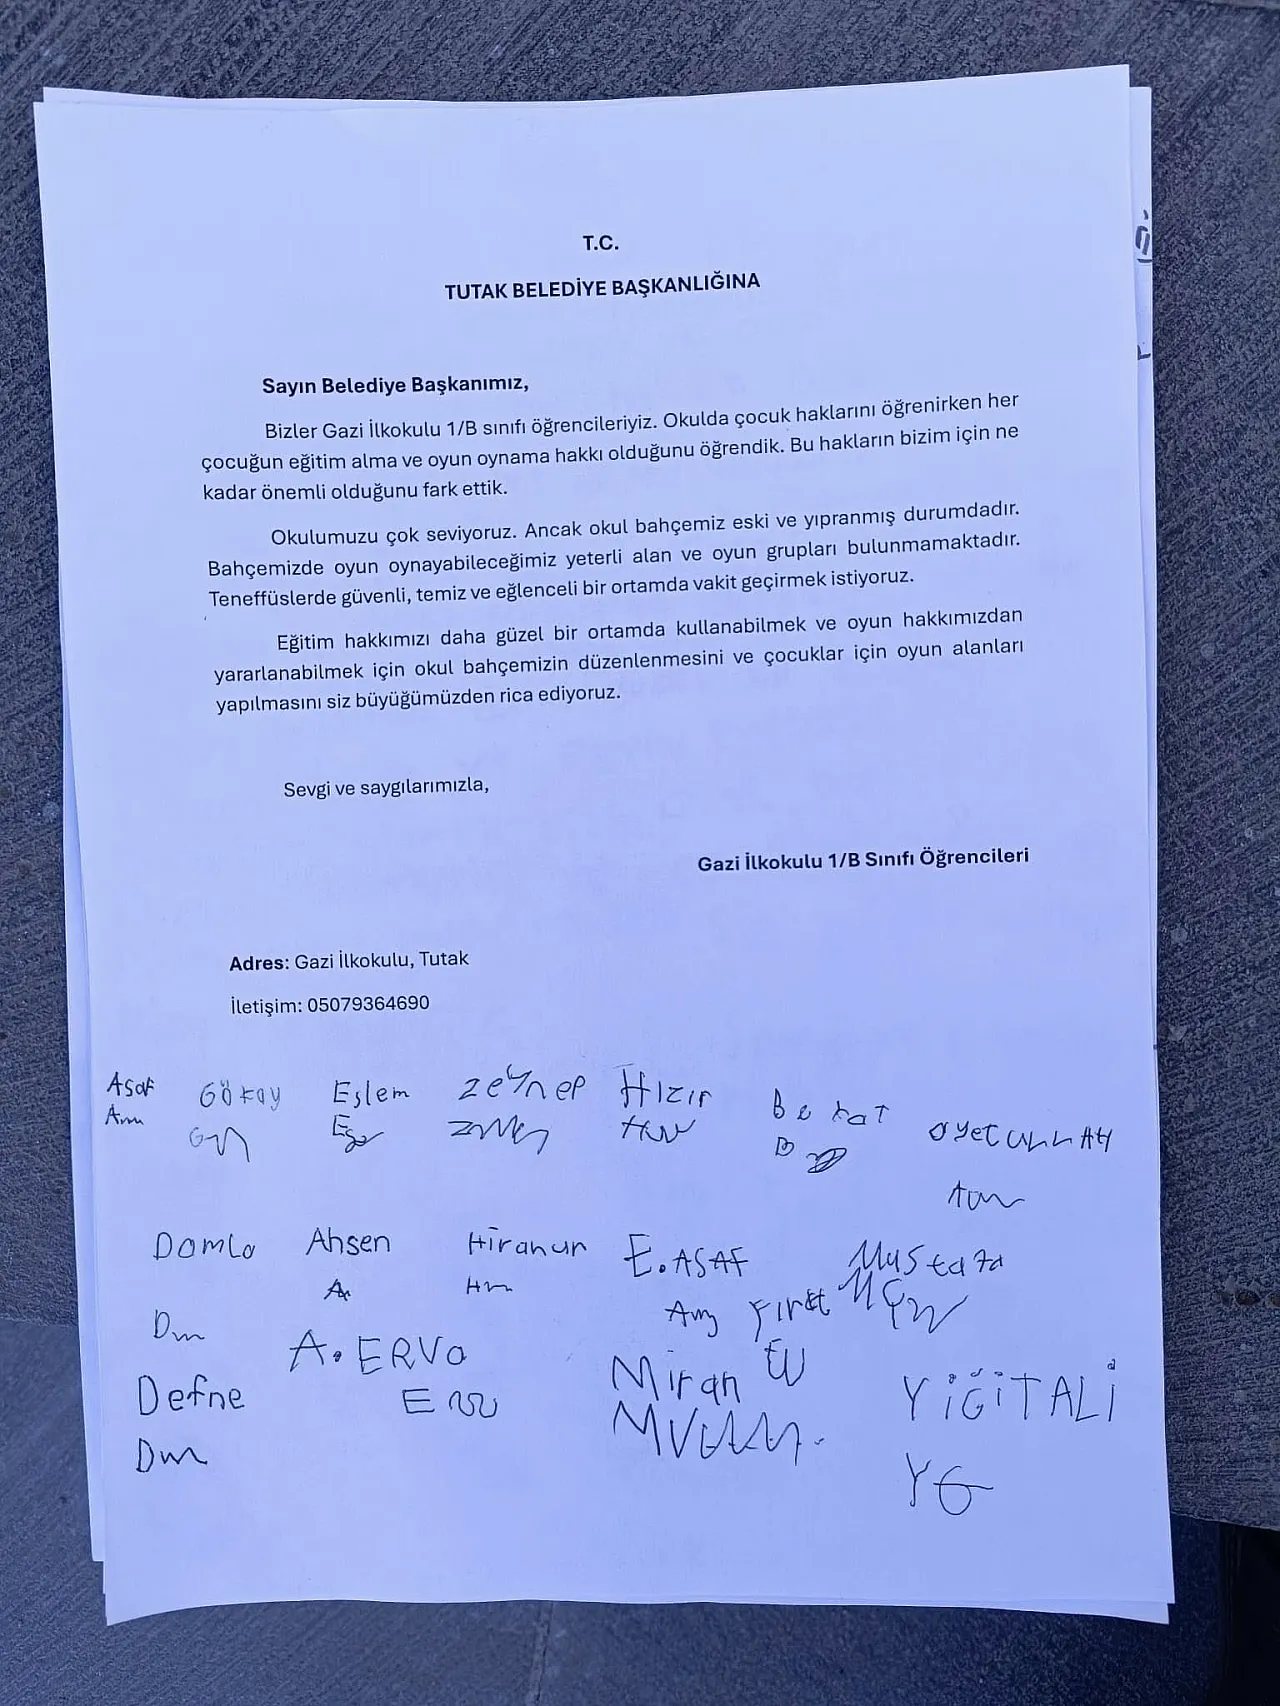 T.C.
TUTAK BELEDİYE BAŞKANLIĞINA
Sayın Belediye Başkanımız,
Bizler Gazi İlkokulu 1/B sınıfı öğrencileriyiz. Okulda çocuk haklarını öğrenirken her
çocuğun eğitim alma ve oyun oynama hakkı olduğunu öğrendik. Bu hakların bizim için ne
kadar önemli olduğunu fark ettik.
Okulumuzu çok seviyoruz. Ancak okul bahçemiz eski ve yıpranmış durumdadır.
Bahçemizde oyun oynayabileceğimiz yeterli alan ve oyun grupları bulunmamaktadır.
Teneffüslerde güvenli, temiz ve eğlenceli bir ortamda vakit geçirmek istiyoruz.
Eğitim hakkımızı daha güzel bir ortamda kullanabilmek ve oyun hakkımızdan
yararlanabilmek için okul bahçemizin düzenlenmesini ve çocuklar için oyun alanları
yapılmasını siz büyüğümüzden rica ediyoruz.
Sevgi ve saygılarımızla,
Gazi İlkokulu 1/B Sınıfı Öğrencileri
Adres: Gazi İlkokulu, Tutak
İletişim: 05079364690
Asaf Gökay Eslem Zeynep Hızır Berat
Damla Ahsen Hiranur E. ASAF Mustafa
Fırat
A. ERVA
Defne Miran YİĞİTALİ
YG